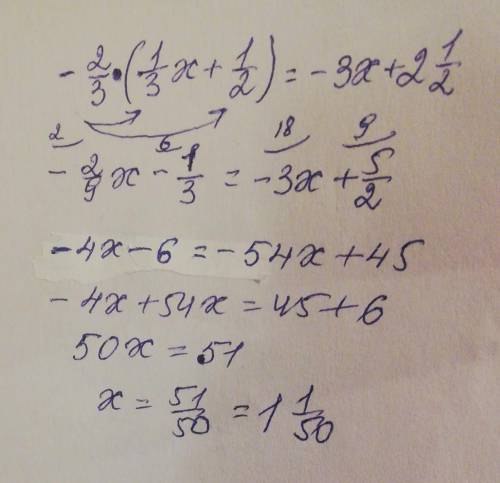 -2/3·(1/3x+1/2)=-3x+2 1/2
2 6 18 9
-2/9x-1/3=-3x+5/2
-4x-6=-54x+45
-4x+54x=45+6
50x=51
x=51/50=1 1/50